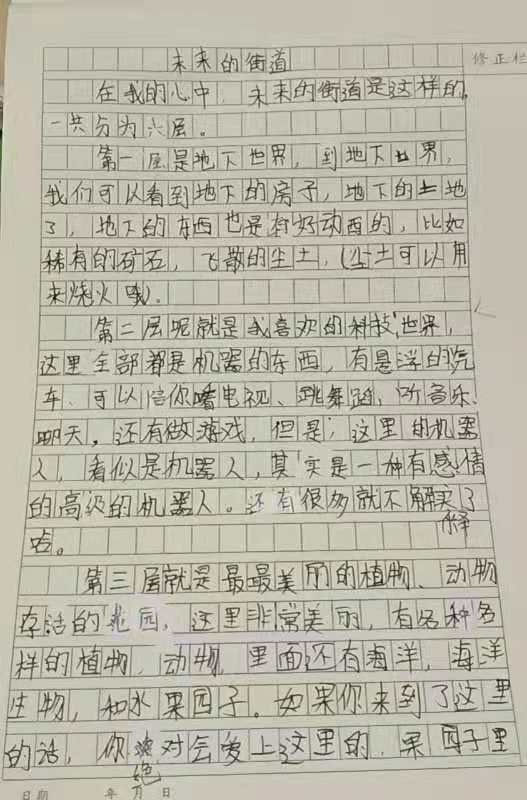 未来的街道
修正栏
在我的心中，未来的街道是这样的。
一共分为六层。
第一层是地下世界，到地下世界，
我们可以看到地下的房子，地下的土地
了，地下的东西也是有好东西的，比如
稀有的矿石，飞散的尘土，(尘土可以用
来烧火哦)。
第二层呢就是我喜欢的科技世界，
这里全部都是机器的东西，有悬浮的汽
车、可以陪你看电视、跳舞蹈，听音乐、
聊天，还有做游戏，但是；这里的机器
人，看似是机器人，其实是一种有感情
的高级的机器人。还有很多就不解释了
哈。
第三层就是最最美丽的植物、动物
存活的花园，这里非常美丽，有各种各
样的植物，动物，里面还有海洋，海洋
生物，和水果园子。如果你来到了这里
的话，你绝对会爱上这里的，果园子里
日期 年 月 日